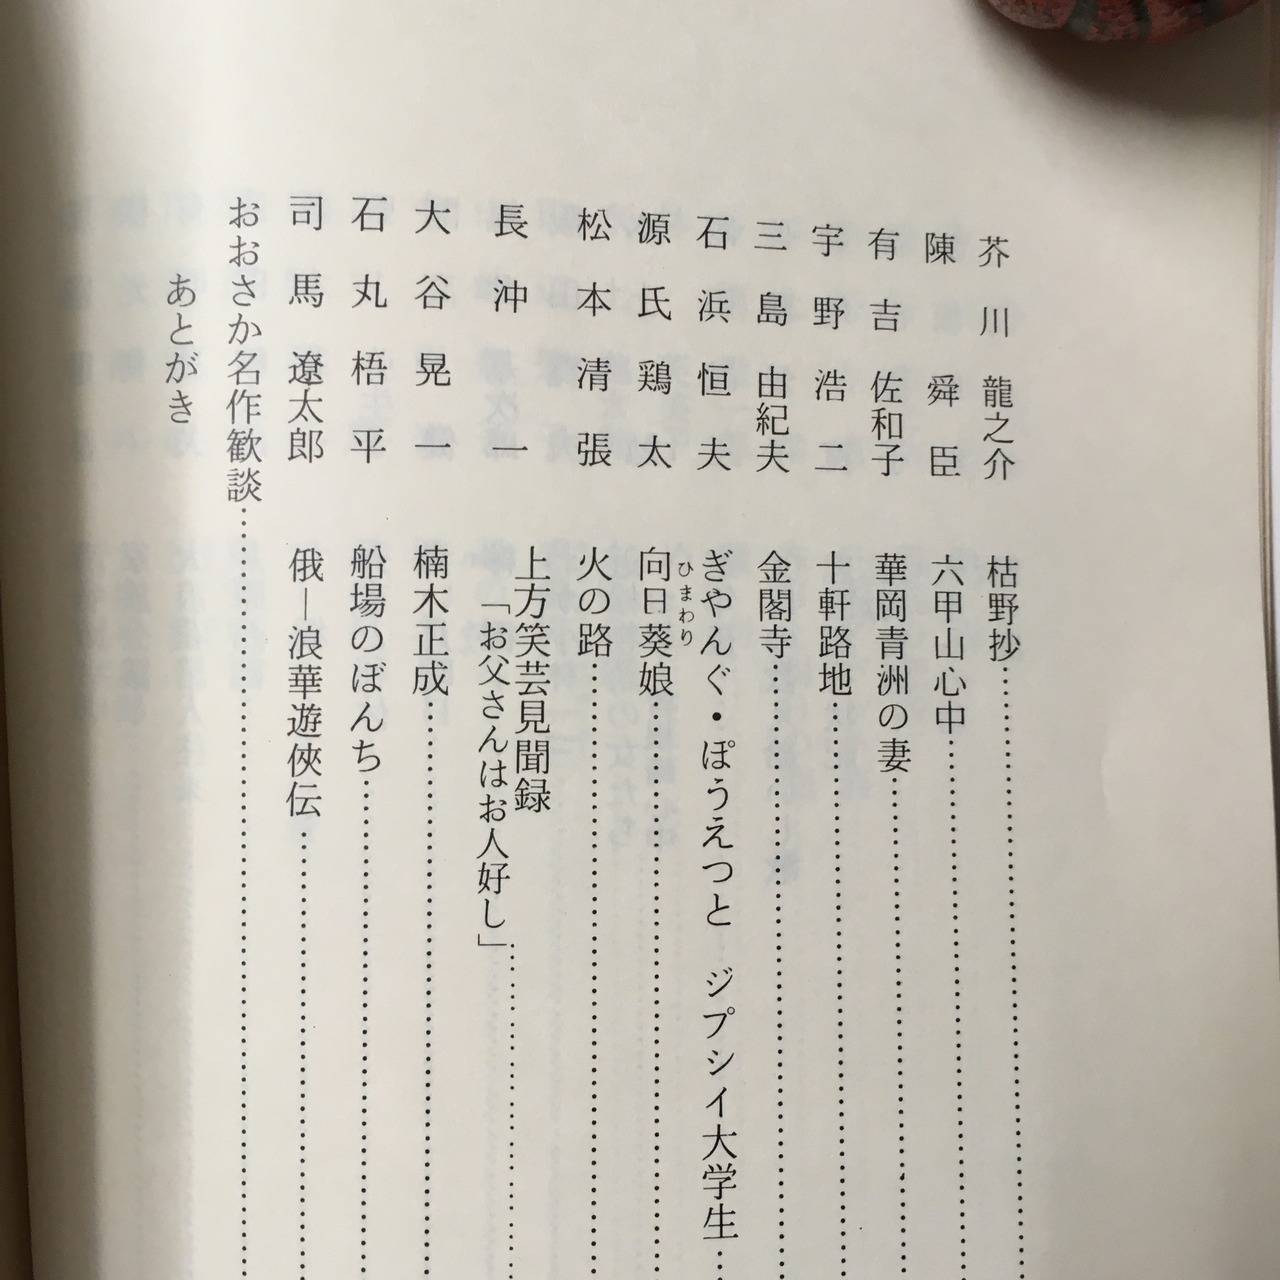 芥川龍之介 枯野抄
陳舜臣 六甲山心中
有吉佐和子 華岡青洲の妻
宇野浩二 十軒路地
三島由紀夫 金閣寺
石浜恒夫 ぎやんぐ・ぽうえつと ジプシイ大学生
源氏鶏太 向日葵娘
ひまわり
松本清張 火の路
長沖一 上方笑芸見聞録
「お父さんはお人好し」
大谷晃一 楠木正成
石丸梧平 船場のぼんち
司馬遼太郎 俄―浪華遊俠伝
おおさか名作歓談
あとがき